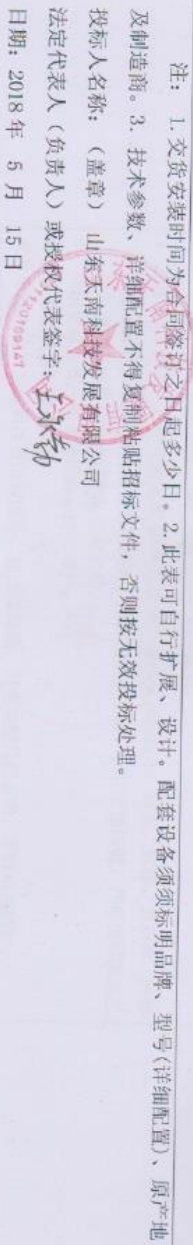 注：1. 交货安装时间为合同签订之日起多少日。2. 此表可自行扩展、设计。配套设备须须标明品牌、型号(详细配置)、原产地
及制造商。3. 技术参数、详细配置不得复制粘贴招标文件，否则按无效投标处理。
投标人名称：（盖章）山东天南科技发展有限公司
法定代表人（负责人）或授权代表签字：
日期：2018 年 5 月 15日